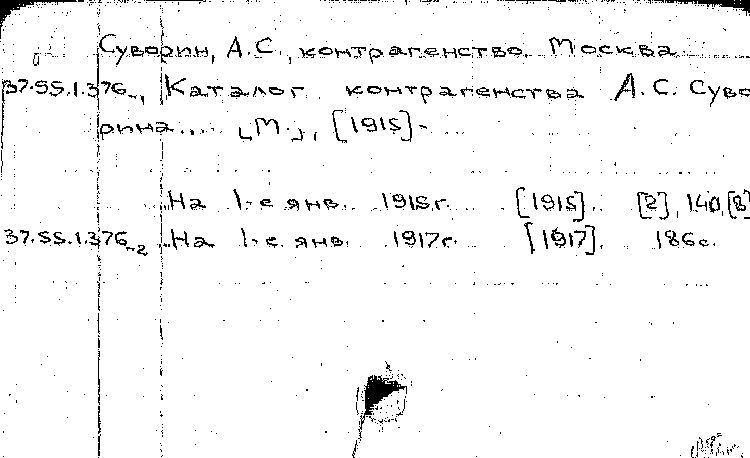 Суворин, А.С., контрагенство. Москва
37.55.1.376-1, Каталог контрагенства А.С. Суво
рина... [М.], [1915]-
На 1-е янв. 1915г. [1915]. [2], 140, [8]
37.55.1.376-2 На 1-е янв. 1917г. [1917]. 186с.